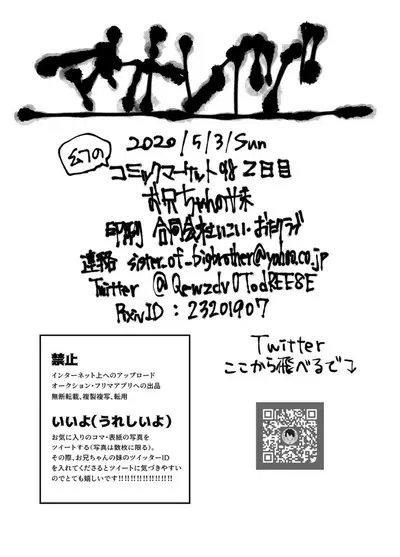 マオレンジ
幻の
2020/5/3/Sun
コミックマーケット98 2日目
お兄ちゃんの妹
印刷 合同会社いこい・おたクラブ
連絡 sister_of_bigbrother@yahoo.co.jp
Twitter @QewzdvOTodREE8E
Pixiv ID : 23201907
禁止
インターネット上へのアップロード
オークション・フリマアプリへの出品
無断転載、複製複写、転用
いいよ(うれしいよ)
お気に入りのコマ・表紙の写真を
ツイートする(写真は数枚に限る)。
その際、お兄ちゃんの妹のツイッターID
を入れてくださるとツイートに気づきやすい
のでとても嬉しいです!!!!!!!!!!!!!!!!!!
Twitter
ここから飛べるで